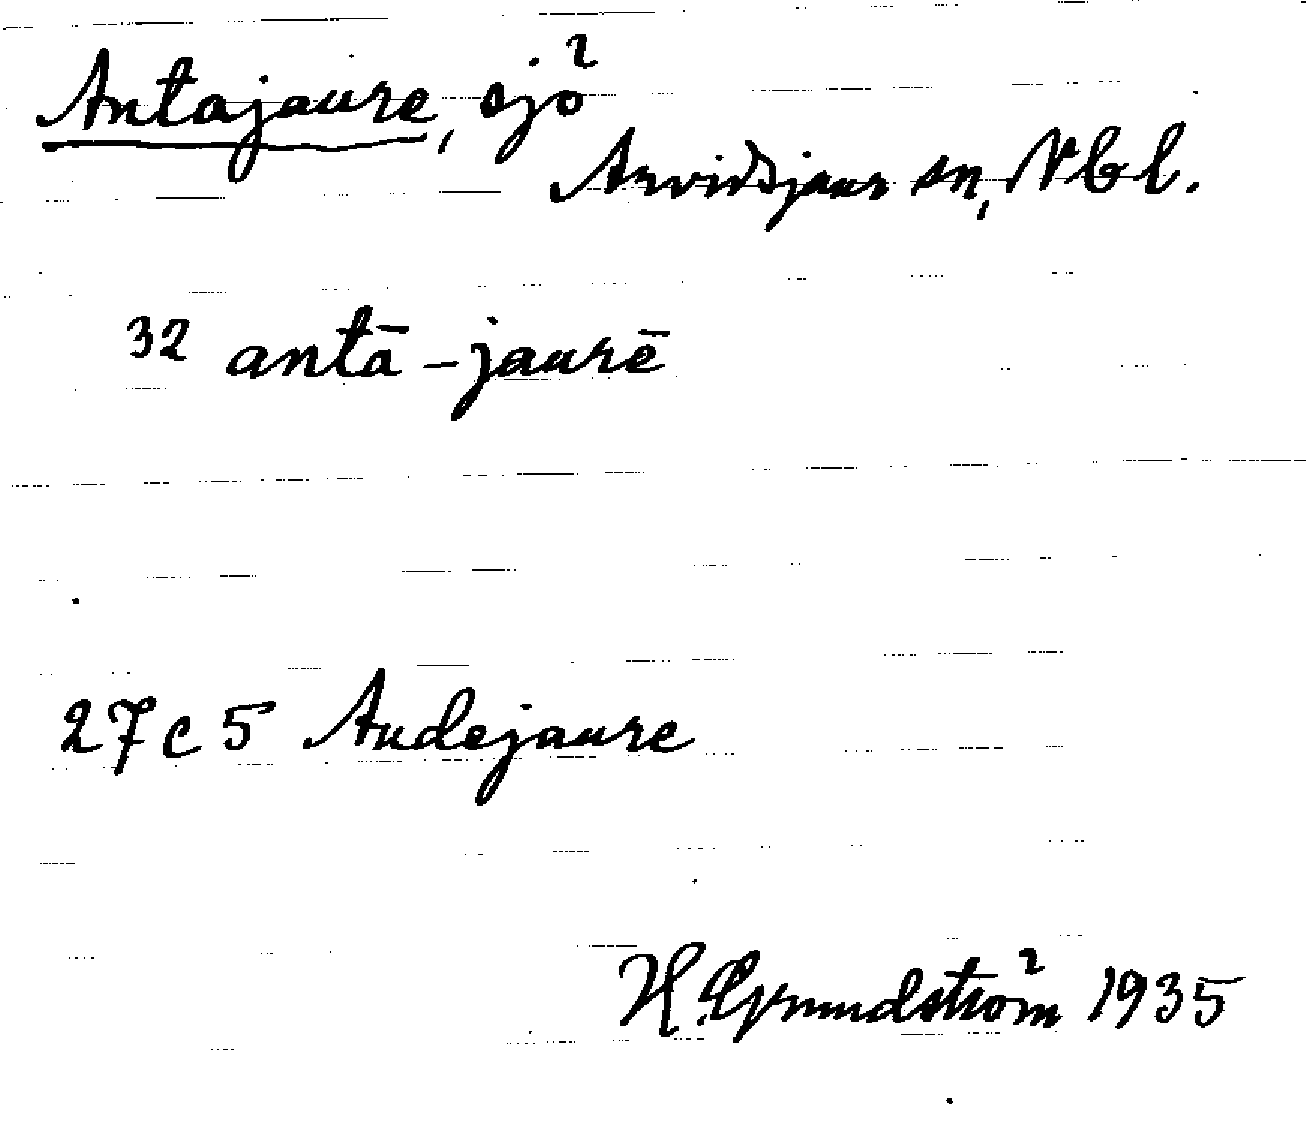 Antajaure, sjö
Arvidsjaur sn, Vbl.
32 antā-jaurē
27 c 5 Audejaure
H. Grundström 1935